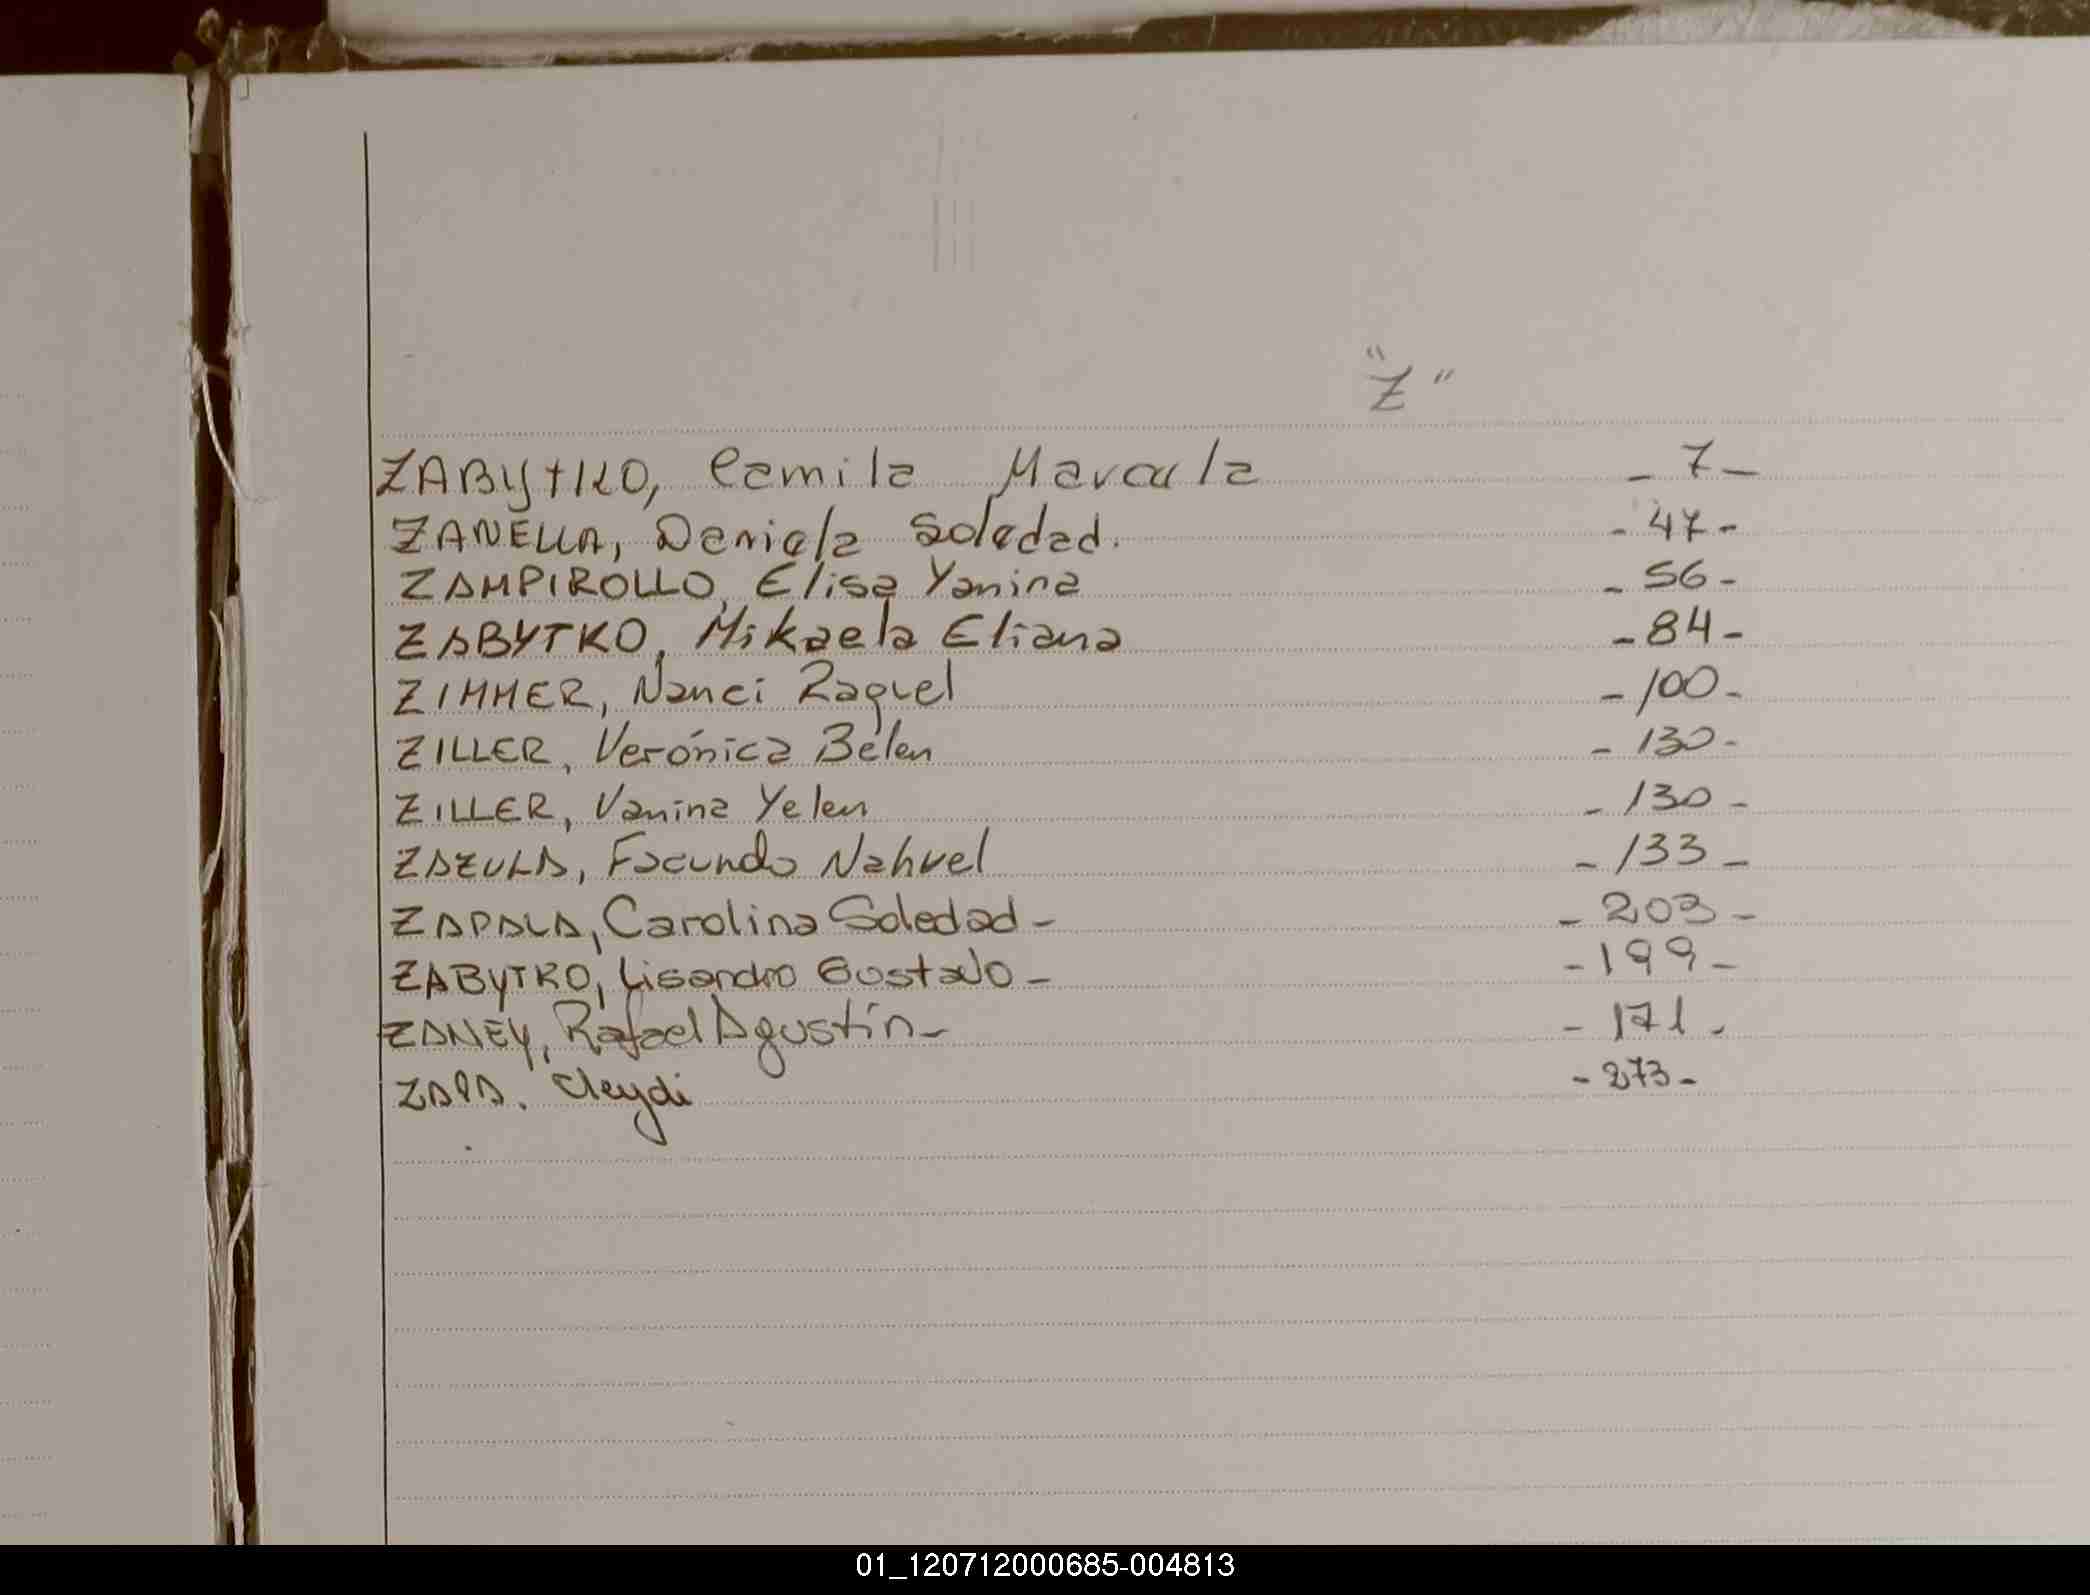 "Z"
ZABYTKO, Camila Marcela - 7 -
ZANELLA, Daniela Soledad. - 47 -
ZAMPIROLLO, Elisa Yanina - 56 -
ZABYTKO, Mikaela Eliana - 84 -
ZIMMER, Nanci Raquel - 100 -
ZILLER, Verónica Belen - 130 -
ZILLER, Vanina Yelen - 130 -
ZAZULA, Facundo Nahuel - 133 -
ZAPALA, Carolina Soledad - - 203 -
ZABYTKO, Lisandro Gustavo - - 199 -
ZANEY, Rafael Agustín - - 171 -
ZAPA. Cleydi - 273 -
01_120712000685-004813